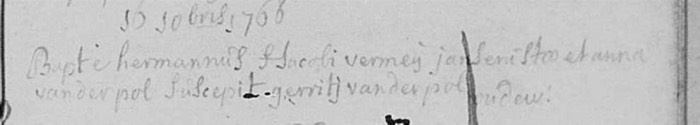 16 10bris 1766
Bapt e hermannus f Jacobi vermeij jansenistæ et anna
van der pol suscepit gerritj van der pol oudew: